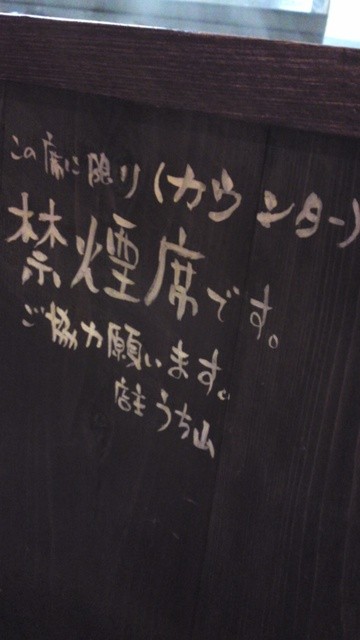 この席に限り(カウンター)
禁煙席です。
ご協力願います。
店主うち山